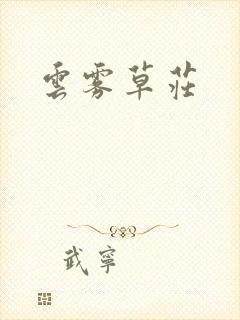 雲雾草莊
武寧